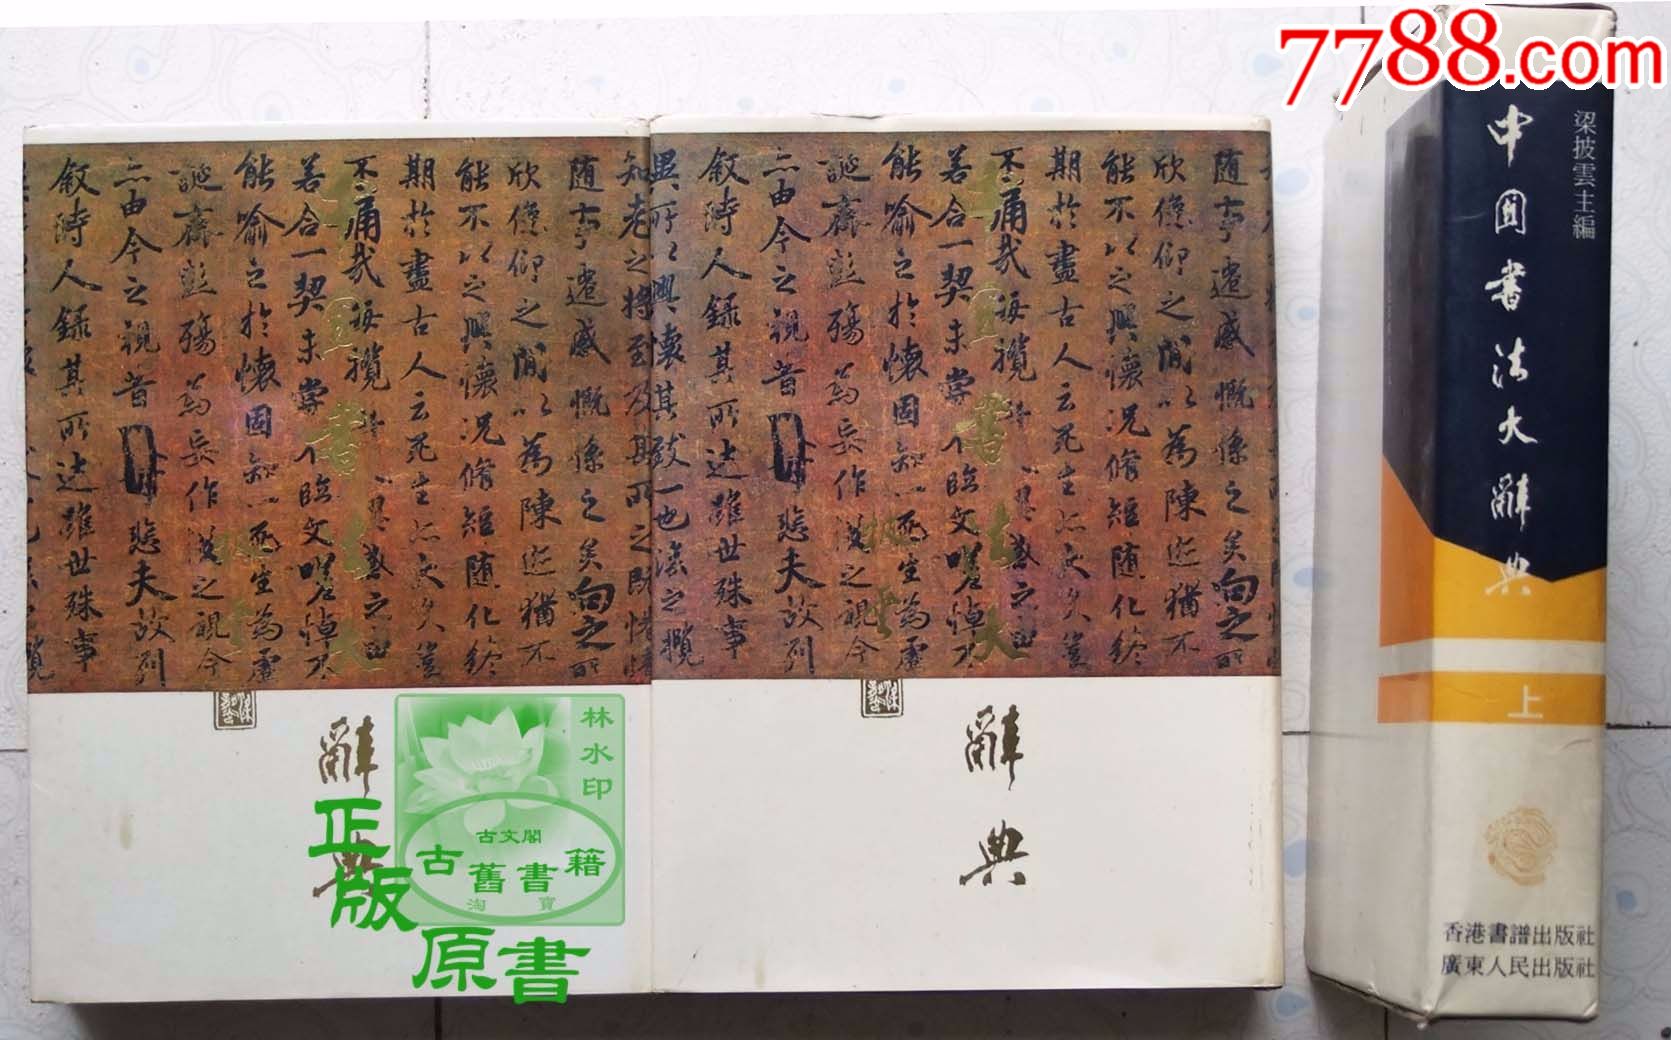 7788.com
知老之將至及其所之既
随事遷感慨係之矣向之所
欣俛仰之閒以為陳迹猶不
能不以之興懷況脩短随化終
期於盡古人云死生亦大矣豈
不痛哉每攬
若合一契未嘗不臨文嗟悼不
能喻之於懷固知一死生為虛
誕齊彭殤為妄作後之視今
亦由今之視昔悲夫故列
叙時人録其所述雖世殊事
書法大
辭典
随事遷感慨係之矣向之所
欣俛仰之閒以為陳迹猶不
能不以之興懷況脩短随化終
期於盡古人云死生亦大矣豈
不痛哉每攬
若合一契未嘗不臨文嗟悼不
能喻之於懷固知一死生為虛
誕齊彭殤為妄作後之視今
亦由今之視昔悲夫故列
叙時人録其所述雖世殊事
異所以興懷其致一也後之攬
書法大
辭典
梁披雲主編
中国書法大辭典
上
香港書譜出版社
廣東人民出版社
林水印
古文閣
古舊書籍
淘寶
正版
原書